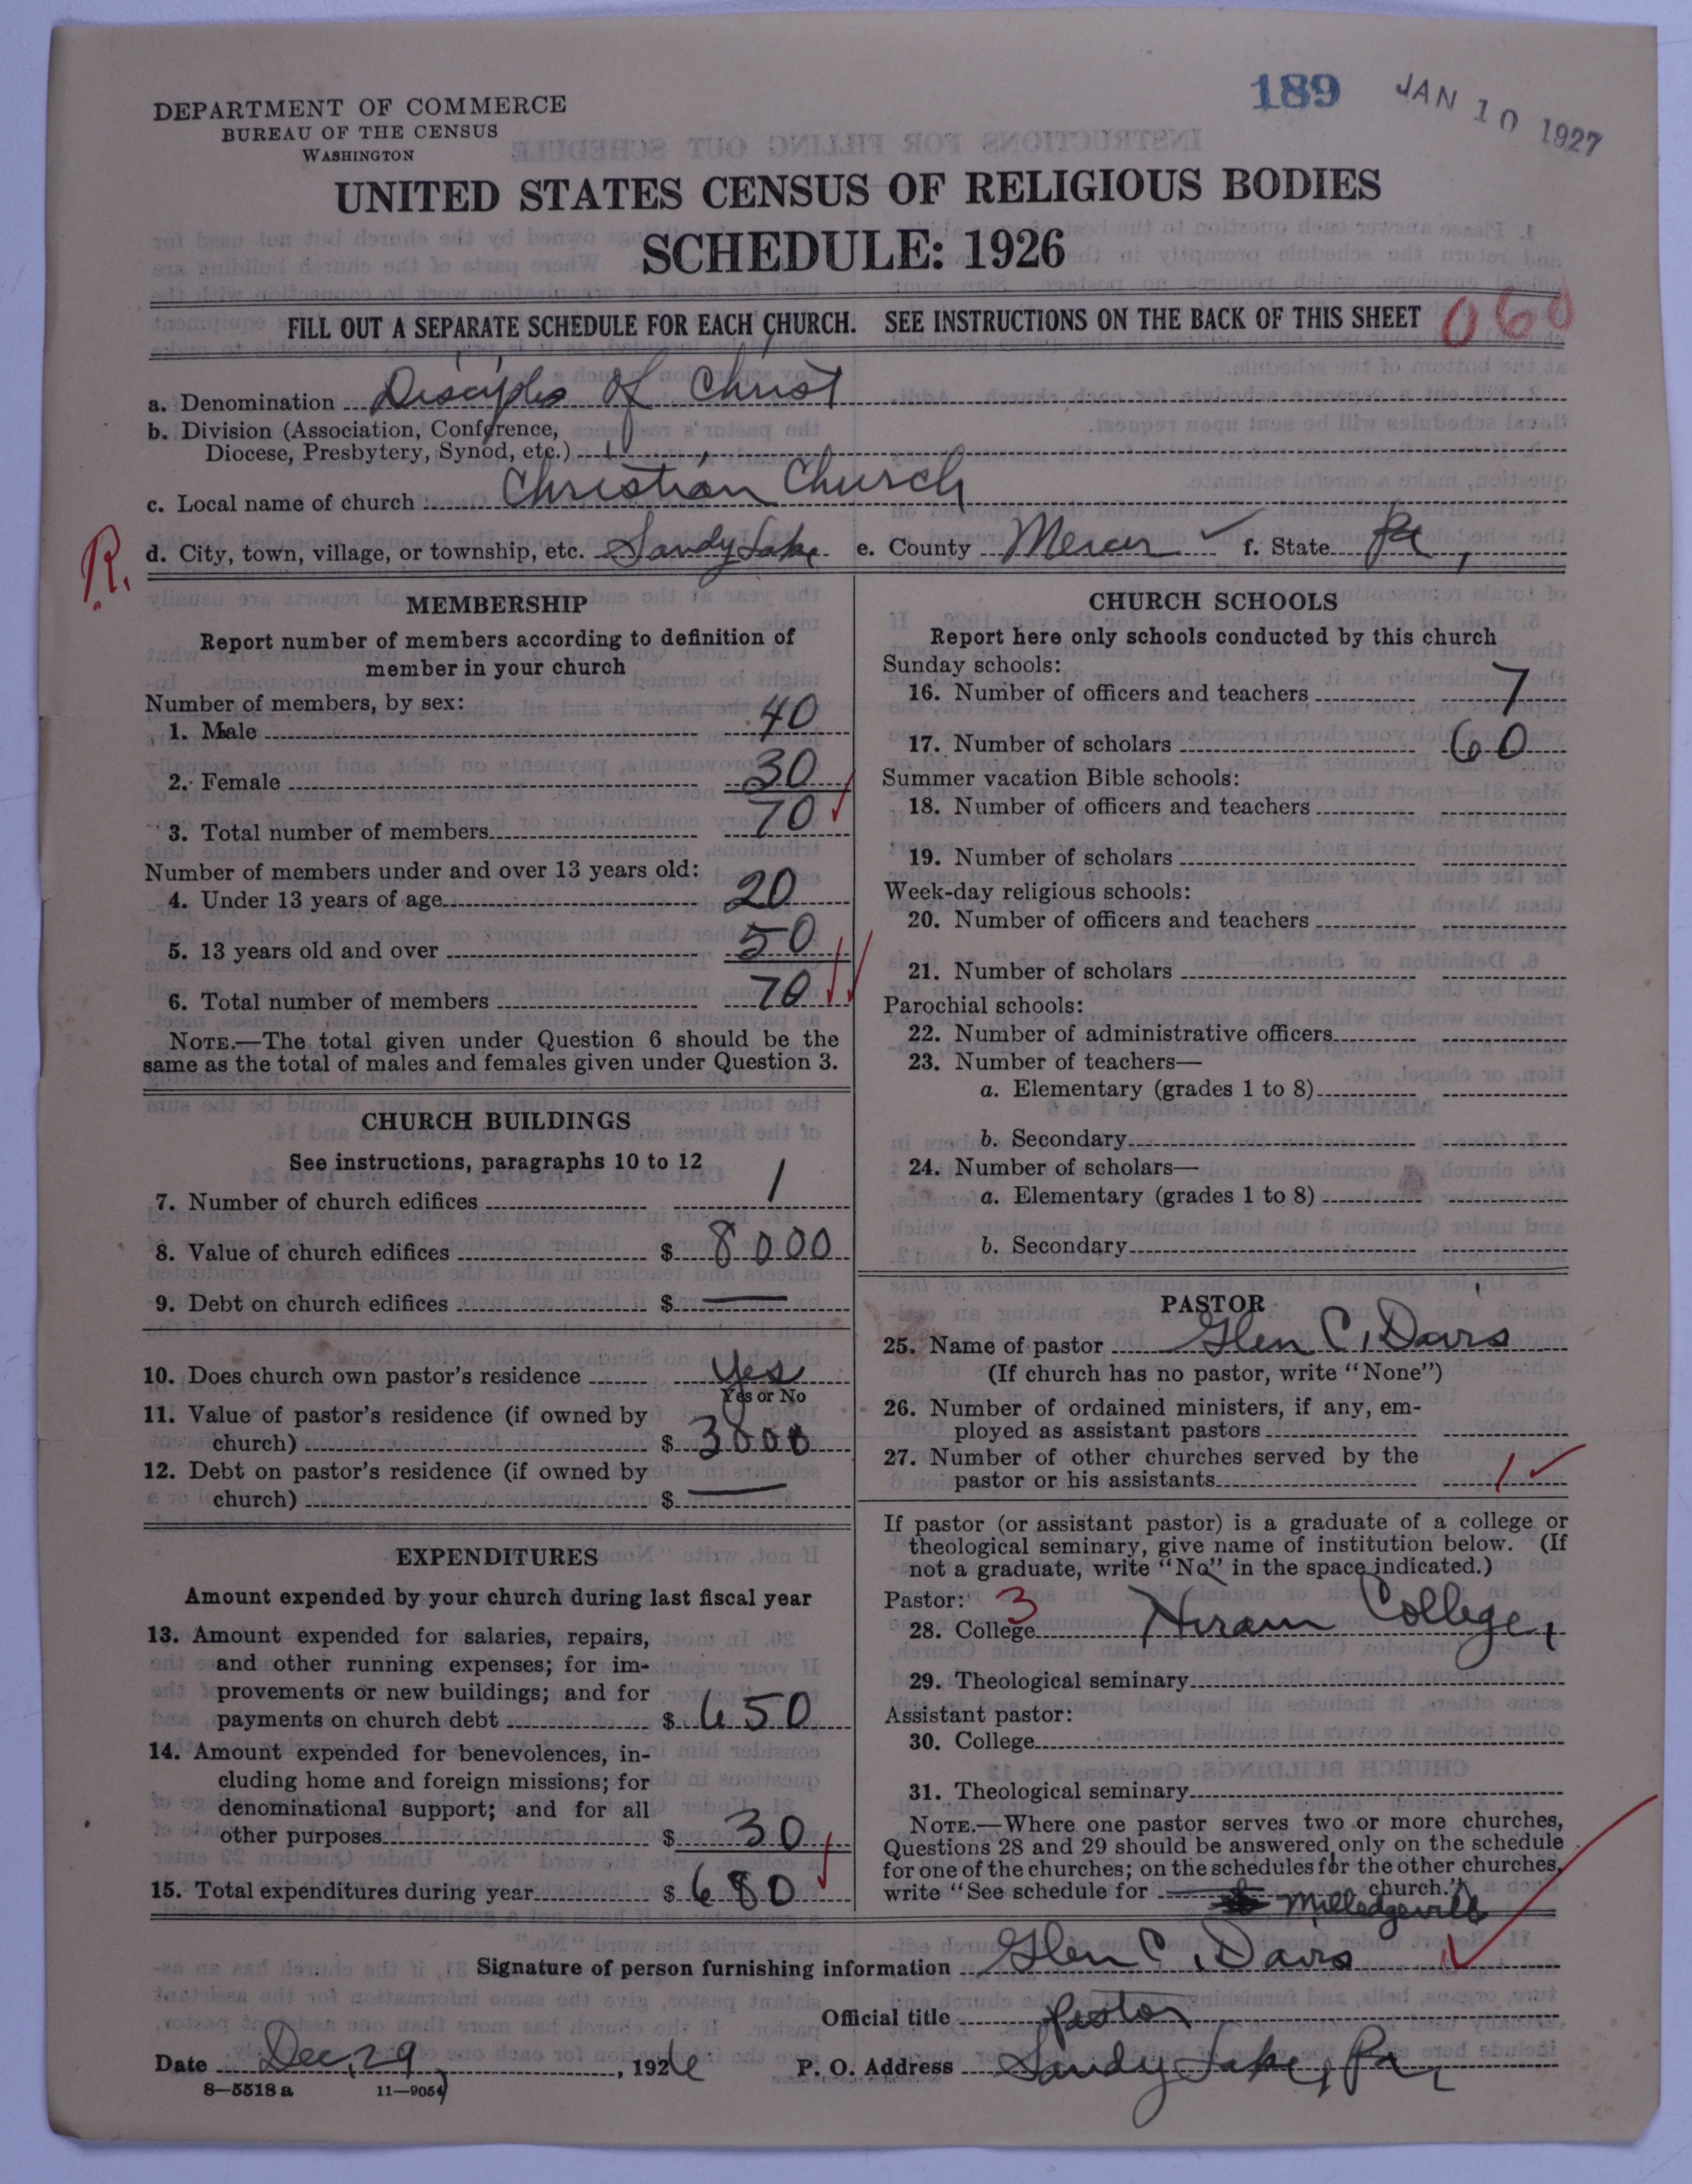 189 JAN 10 1927
DEPARTMENT OF COMMERCE
BUREAU OF THE CENSUS
WASHINGTON
UNITED STATES CENSUS OF RELIGIOUS BODIES
SCHEDULE: 1926
FILL OUT A SEPARATE SCHEDULE FOR EACH CHURCH. SEE INSTRUCTIONS ON THE BACK OF THIS SHEET 060
a. Denomination Disciples of Christ
b. Division (Association, Conference,
Diocese, Presbytery, Synod, etc.)
c. Local name of church Christian Church
R. d. City, town, village, or township, etc. Sandy Lake e. County Mercer f. State Pa,
MEMBERSHIP
Report number of members according to definition of
member in your church
Number of members, by sex:
1. Male 40
2. Female 30
3. Total number of members 70
Number of members under and over 13 years old:
4. Under 13 years of age 20
5. 13 years old and over 50
6. Total number of members 70
NOTE.—The total given under Question 6 should be the
same as the total of males and females given under Question 3.
CHURCH BUILDINGS
See instructions, paragraphs 10 to 12
7. Number of church edifices 1
8. Value of church edifices $ 8000
9. Debt on church edifices $ —
10. Does church own pastor's residence Yes
Yes or No
11. Value of pastor's residence (if owned by
church) $ 3000
12. Debt on pastor's residence (if owned by
church) $ —
EXPENDITURES
Amount expended by your church during last fiscal year
13. Amount expended for salaries, repairs,
and other running expenses; for im-
provements or new buildings; and for
payments on church debt $ 650
14. Amount expended for benevolences, in-
cluding home and foreign missions; for
denominational support; and for all
other purposes $ 30
15. Total expenditures during year $ 680
CHURCH SCHOOLS
Report here only schools conducted by this church
Sunday schools:
16. Number of officers and teachers 7
17. Number of scholars 60
Summer vacation Bible schools:
18. Number of officers and teachers
19. Number of scholars
Week-day religious schools:
20. Number of officers and teachers
21. Number of scholars
Parochial schools:
22. Number of administrative officers
23. Number of teachers—
a. Elementary (grades 1 to 8)
b. Secondary
24. Number of scholars—
a. Elementary (grades 1 to 8)
b. Secondary
PASTOR
25. Name of pastor Glen C. Davis
(If church has no pastor, write "None")
26. Number of ordained ministers, if any, em-
ployed as assistant pastors
27. Number of other churches served by the
pastor or his assistants 1
If pastor (or assistant pastor) is a graduate of a college or
theological seminary, give name of institution below. (If
not a graduate, write "No" in the space indicated.)
Pastor: 3
28. College Hiram College,
29. Theological seminary
Assistant pastor:
30. College
31. Theological seminary
NOTE.—Where one pastor serves two or more churches,
Questions 28 and 29 should be answered only on the schedule
for one of the churches; on the schedules for the other churches,
write "See schedule for church.")
Milledgeville
Signature of person furnishing information Glen C. Davis
Official title Pastor
Date Dec. 29, 1926 P. O. Address Sandy Lake, Pa,
8—5518 a 11—9054